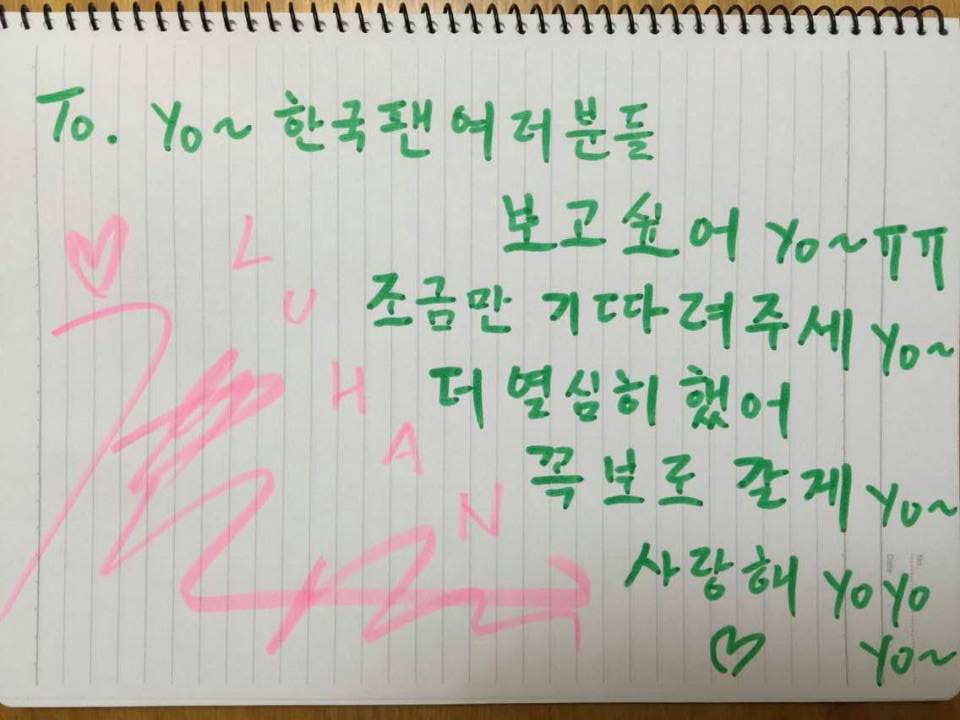 To. Yo~ 한국팬여러분들
보고싶어 Yo~ㅠㅠ
조금만 기따려주세 Yo~
더 열심히 했어
꼭보로 갈게 Yo~
사랑해 YoYo
♡ Yo~
♡
L
U
H
A
N
No.
Date